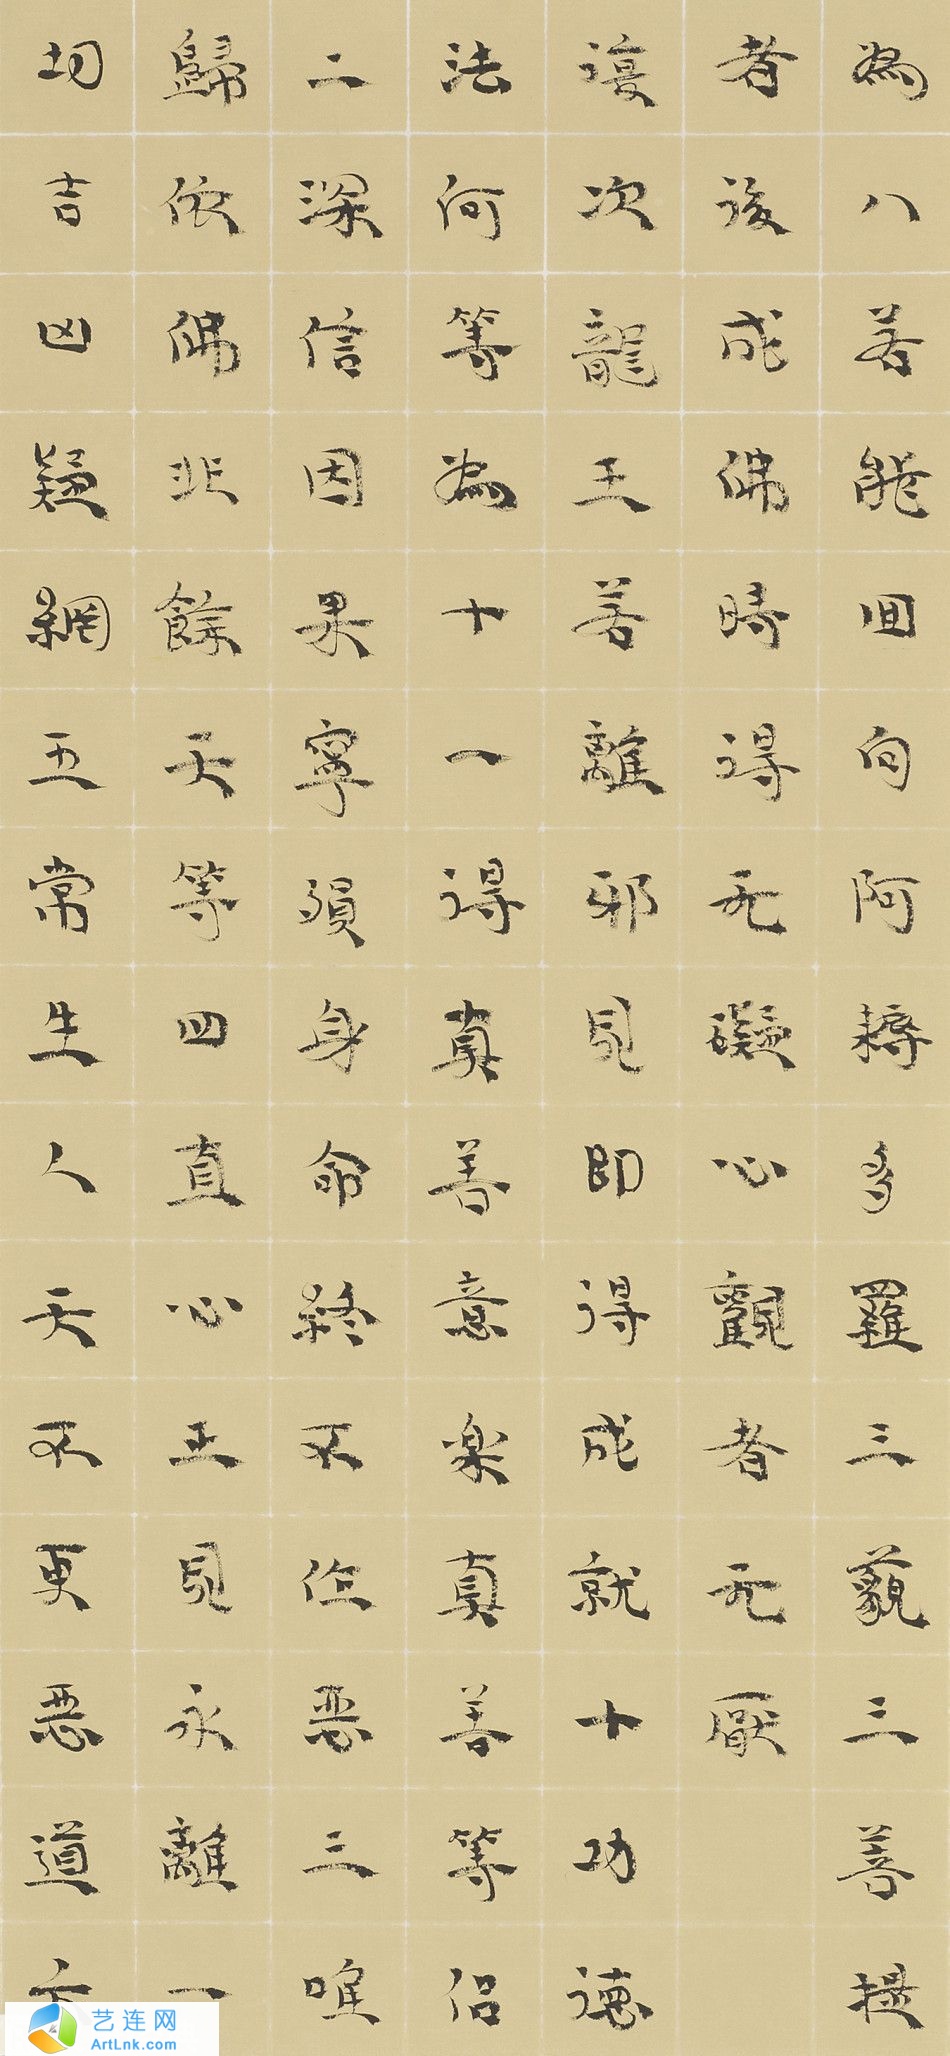 為八若能迴向阿耨多羅三藐三菩提
者後成佛時得无礙心觀者无厭
複次龍王若離邪見即得成就十功德
法何等為十一得真善意樂真善等侣
二深信因果寧殞身命終不作惡三唯
歸依佛非餘天等四直心正見永離一
切吉凶疑網五常生人天不更惡道
艺连网
ArtLnk.com